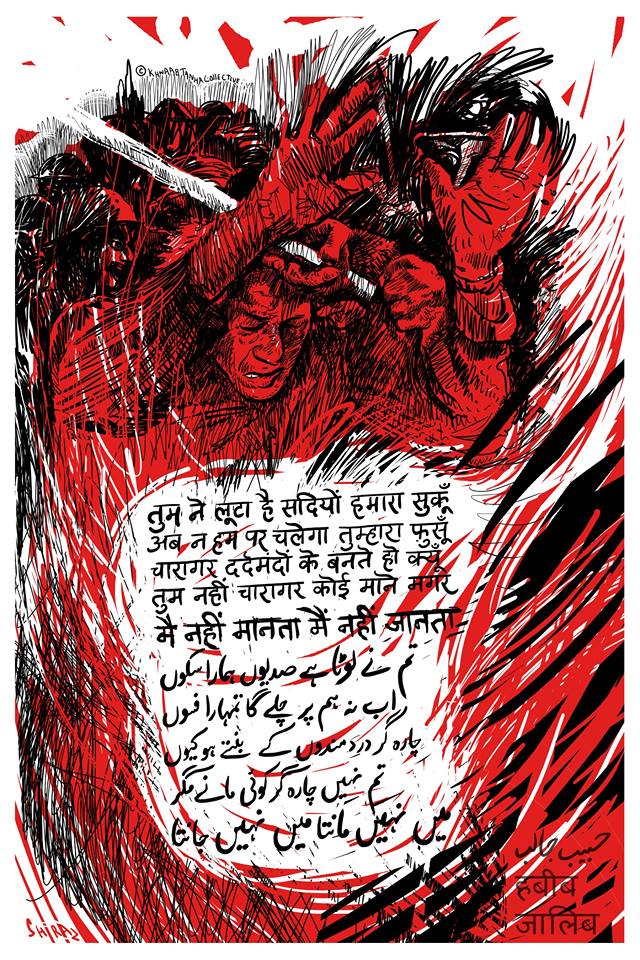 © KHWAAB TANHA COLLECTIVE
तुम ने लूटा है सदियों हमारा सुकूँ
अब न हम पर चलेगा तुम्हारा फ़ुसूँ
चारागर दर्दमंदों के बनते हो क्यूँ
तुम नहीं चारागर कोई माने मगर
मैं नहीं मानता मैं नहीं जानता
تم نے لوٹا ہے صدیوں ہمارا سکوں
اب نہ ہم پر چلے گا تمہارا فسوں
چارہ گر دردمندوں کے بنتے ہو کیوں
تم نہیں چارہ گر کوئی مانے مگر
میں نہیں مانتا میں نہیں جانتا
حبیب جالب
हबीब
जालिब
SHIRAZ